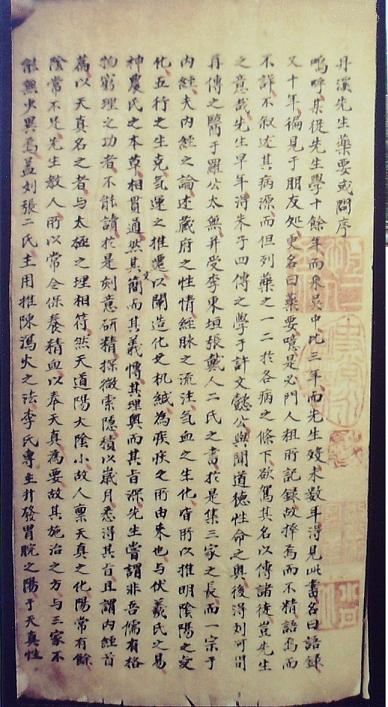 丹溪先生藥要或問序
嗚呼某從先生學十餘年而來吳中比三年而先生歿未数年得見此書名曰語録
又十年徧見于朋友処更名曰藥要噫是必門人粗所記録故擇焉而不精語焉而
不詳不叙述其病源而但列藥之一二扵各病之條下欲駕其名以傳諸後豈先生
之意哉先生早年得朱子四傳之學于許文懿公與聞道德性命之奧後得刘河間
再傳之醫于羅公太無并受李東垣張戴人二氏之書扵是集三家之長而一宗于
内經夫内經之論述藏府之性情經脉之流注氣血之生化皆所以推明陰陽之変
化五行之生克氣運之推遷以闡造化之机緘為疾疢之所由來也与伏羲氏之易
神農氏之本草相貫通然其文簡而其義愽其理奧而其旨深先生嘗謂非吾儒有格
物窮理之功者不能讀扵是刻意研精探微索隱積以歲月悉得其旨且謂内經首
篇以天真名之者与太極之理相符然天道陽大陰小故人稟天真之化陽常有餘
陰常不足先生教人所以常令保養精血以奉天真為要故其施治之方与三家不
能無少異焉盖刘張二氏主用推陳瀉火之法李氏專主升發胃脘之陽于天真性